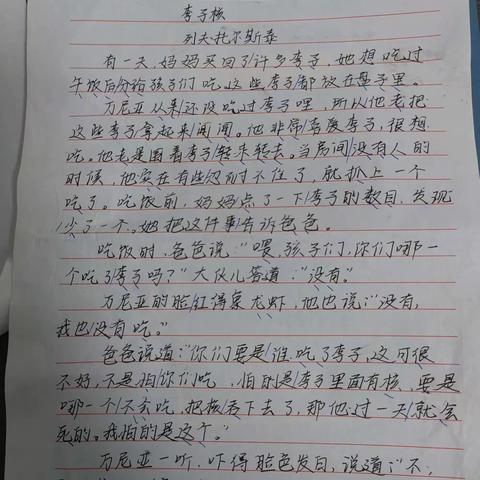 李子核
列夫托尔斯泰
有一天，妈妈买回了许多李子，她想吃过
午饭后分给孩子们吃，这些李子都放在盘子里。
万尼亚从来还没吃过李子哩，所以他老把
这些李子拿起来闻闻。他非常喜爱李子，很想
吃。他老是围着李子转来转去。当房间没有人的
时候，他实在有些忍耐不住了，就抓上一个
吃了。吃饭前，妈妈点了一下李子的数目，发现
少了一个。她把这件事告诉爸爸。
吃饭时，爸爸说："喂，孩子们，你们哪一
个吃了李子吗？"大伙儿答道："没有。"
万尼亚的脸红得象龙虾，他也说："没有，
我也没有吃。"
爸爸说道："你们要是谁吃了李子，这可很
不好，不是怕你们吃，怕的是李子里面有核，要是
哪一个不会吃，把核吞下去了，那他过一天就会
死的。我怕的是这个。"
万尼亚一听，吓得脸色发白，说道："不，